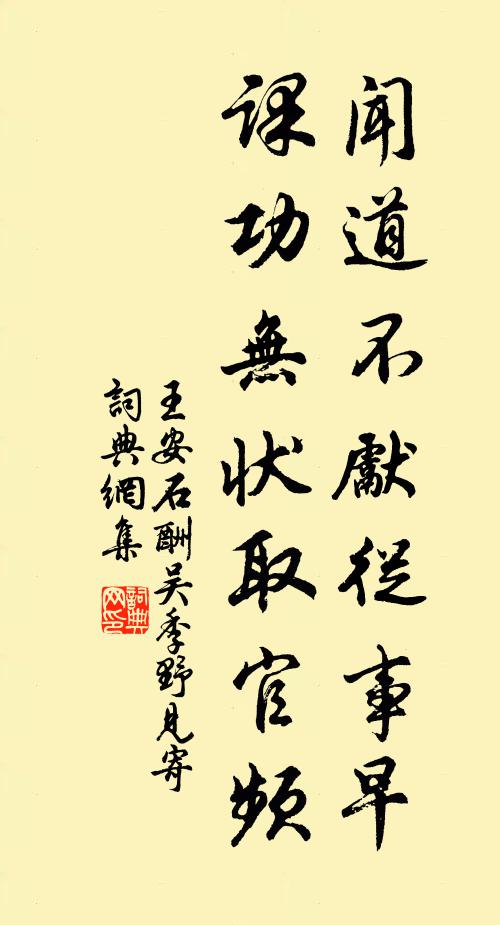 聞道不獻從事早
課功無状取官頻
王安石酬吴季野見寄
詞典網集
詞典网印